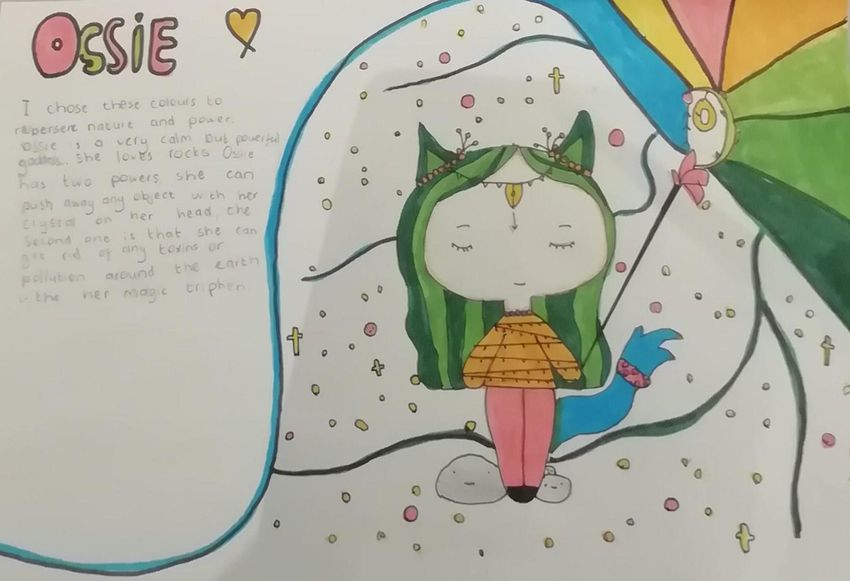 OSSIE
I chose these colours to
repersere nature and power.
Ossie is a very calm but powerful
goddess. She loves rocks Ossie
has two powers she can
push away any object with her
crystal on her head, the
second one is that she can
get rid of any toxins or
pollution around the earth
withe her magic triphen.